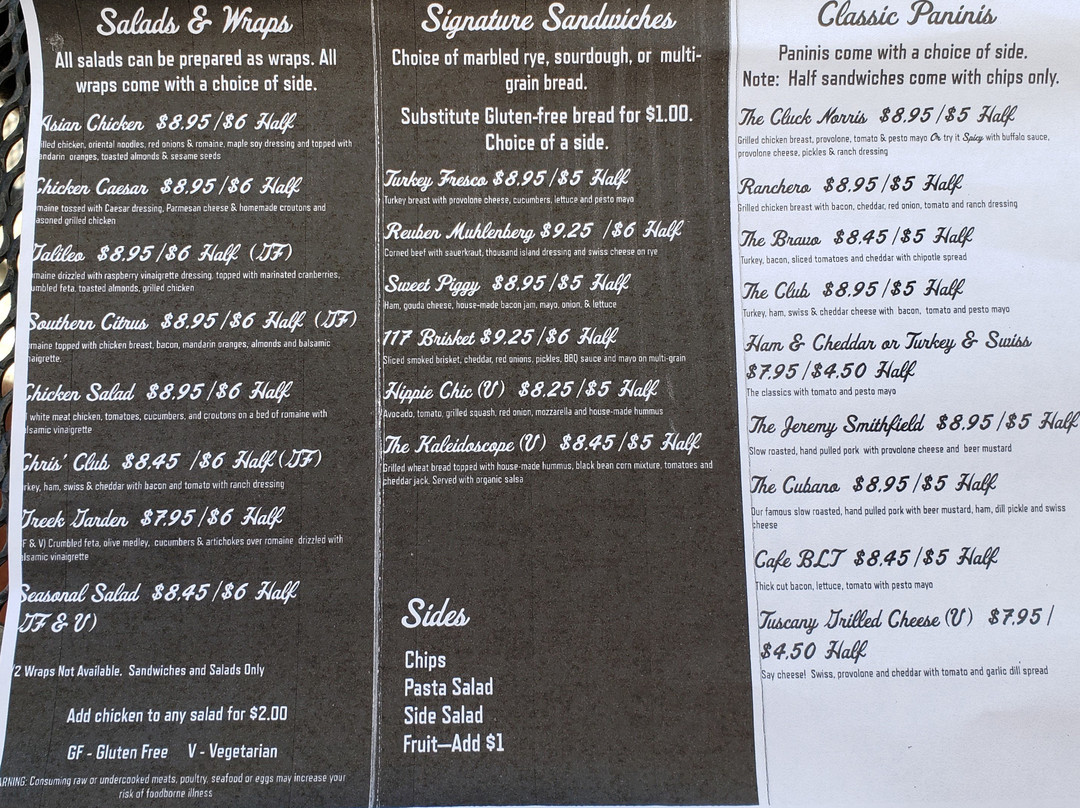 Salads & Wraps
All salads can be prepared as wraps. All
wraps come with a choice of side.
Asian Chicken $8.95/$6 Half
chicken, oriental noodles, red onions & romaine, maple soy dressing and topped with
oranges, toasted almonds & sesame seeds
Chicken Caesar $8.95/$6 Half
tossed with Caesar dressing, Parmesan cheese & homemade croutons and
grilled chicken
Galileo $8.95/$6 Half (GF)
drizzled with raspberry vinaigrette dressing, topped with marinated cranberries,
feta, toasted almonds, grilled chicken
Southern Citrus $8.95/$6 Half (GF)
topped with chicken breast, bacon, mandarin oranges, almonds and balsamic
Chicken Salad $8.95/$6 Half
white meat chicken, tomatoes, cucumbers, and croutons on a bed of romaine with
vinaigrette
Chris' Club $8.45 /$6 Half(GF)
ham, swiss & cheddar with bacon and tomato with ranch dressing
Greek Garden $7.95/$6 Half
& V) Crumbled feta, olive medley, cucumbers & artichokes over romaine drizzled with
vinaigrette
Seasonal Salad $8.45/$6 Half
GF & V)
/2 Wraps Not Available. Sandwiches and Salads Only
Add chicken to any salad for $2.00
GF - Gluten Free V - Vegetarian
ARNING: Consuming raw or undercooked meats, poultry, seafood or eggs may increase your
risk of foodborne illness
Signature Sandwiches
Choice of marbled rye, sourdough, or multi-
grain bread.
Substitute Gluten-free bread for $1.00.
Choice of a side.
Turkey Fresco $8.95/$5 Half
Turkey breast with provolone cheese, cucumbers, lettuce and pesto mayo
Reuben Muhlenberg $9.25 /$6 Half
Corned beef with sauerkraut, thousand island dressing and swiss cheese on rye
Sweet Piggy $8.95/$5 Half
Ham, gouda cheese, house-made bacon jam, mayo, onion, & lettuce
117 Brisket $9.25/$6 Half
Sliced smoked brisket, cheddar, red onions, pickles, BBQ sauce and mayo on multi-grain
Hippie Chic (V) $8.25/$5 Half
Avocado, tomato, grilled squash, red onion, mozzarella and house-made hummus
The Kaleidoscope (V) $8.45/$5 Half
Grilled wheat bread topped with house-made hummus, black bean corn mixture, tomatoes and
cheddar jack. Served with organic salsa
Sides
Chips
Pasta Salad
Side Salad
Fruit—Add $1
Classic Paninis
Paninis come with a choice of side.
Note: Half sandwiches come with chips only.
The Cluck Norris $8.95/$5 Half
Grilled chicken breast, provolone, tomato & pesto mayo Or try it Spicy with buffalo sauce,
provolone cheese, pickles & ranch dressing
Ranchero $8.95/$5 Half
Grilled chicken breast with bacon, cheddar, red onion, tomato and ranch dressing
The Bravo $8.45/$5 Half
Turkey, bacon, sliced tomatoes and cheddar with chipotle spread
The Club $8.95/$5 Half
Turkey, ham, swiss & cheddar cheese with bacon, tomato and pesto mayo
Ham & Cheddar or Turkey & Swiss
$7.95/$4.50 Half
The classics with tomato and pesto mayo
The Jeremy Smithfield $8.95/$5 Half
Slow roasted, hand pulled pork with provolone cheese and beer mustard
The Cubano $8.95/$5 Half
Our famous slow roasted, hand pulled pork with beer mustard, ham, dill pickle and swiss
cheese
Cafe BLT $8.45/$5 Half
Thick cut bacon, lettuce, tomato with pesto mayo
Tuscany Grilled Cheese (V) $7.95/
$4.50 Half
Say cheese! Swiss, provolone and cheddar with tomato and garlic dill spread